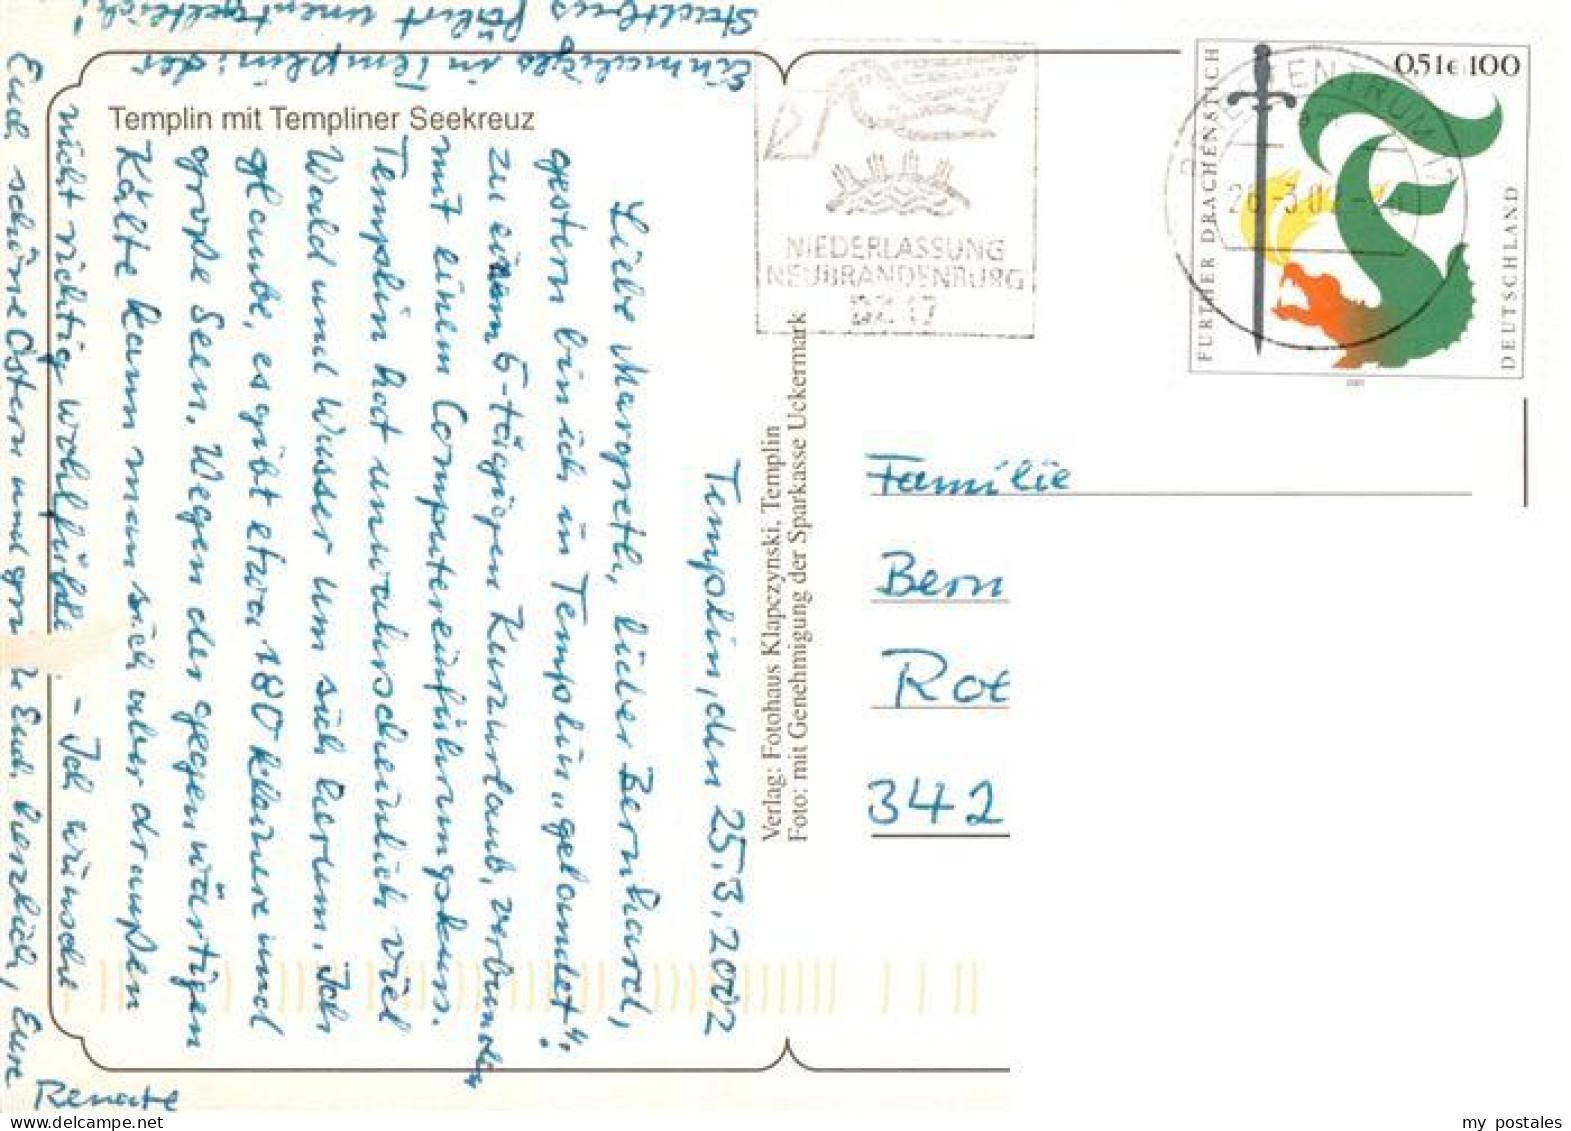 Templin mit Templiner Seekreuz
Templin, den 25.3.2002
Liebe Margreth, lieber Bernhard,
gestern bin ich in Templin „gelandet",
zu einem 5-tägigen Kurzurlaub, verbunden
mit einem Computereinführungskurs.
Templin hat unwahrscheinlich viel
Wald und Wasser um sich herum. Ich
glaube, es gibt etwa 180 kleinere und
große Seen. Wegen der gegenwärtigen
Kälte kann man sich aber draußen
nicht richtig wohlfühle - Ich wünsche
Euch schöne Ostern und Euch herzlich, Eure
Renate
Einmaliges in Templin: der
Stadtbus fährt unentgeltlich!
Verlag: Fotohaus Klapczynski, Templin
Foto: mit Genehmigung der Sparkasse Uckermark
NIEDERLASSUNG
NEUBRANDENBURG
BZ 17
BRIEFZENTRUM 17
26.-3.02
FURTHER DRACHENSTICH
0,51€ 100
DEUTSCHLAND
2001
Familie
Bern
Rot
342
my postales